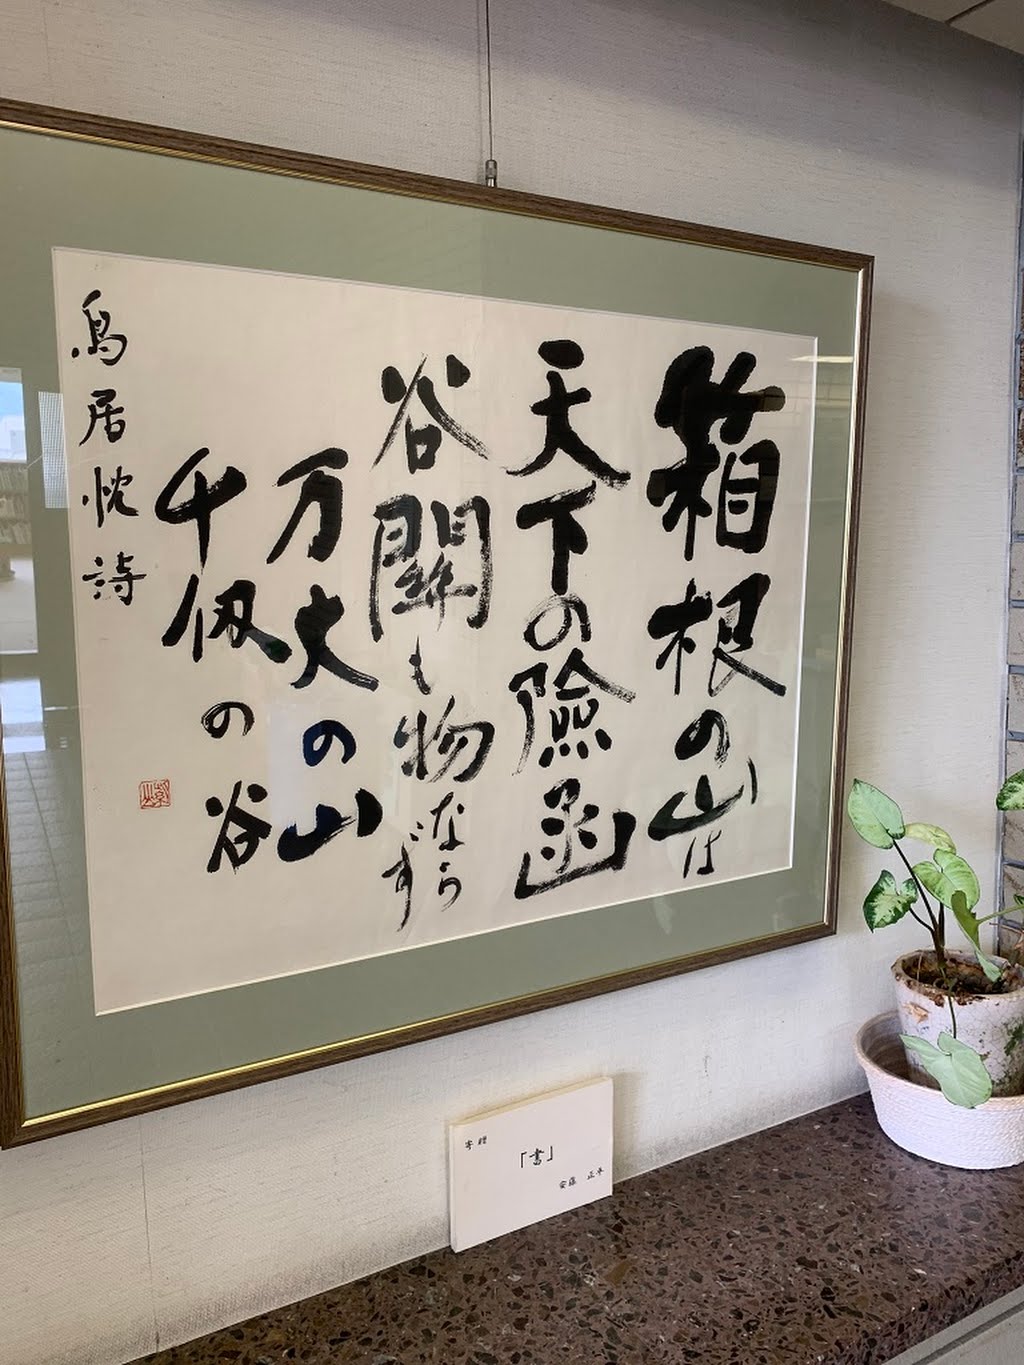 箱根の山は
天下の險函
谷關も物ならず
万丈の山
千仭の谷
鳥居忱詩
寄贈
「書」
安藤 正平